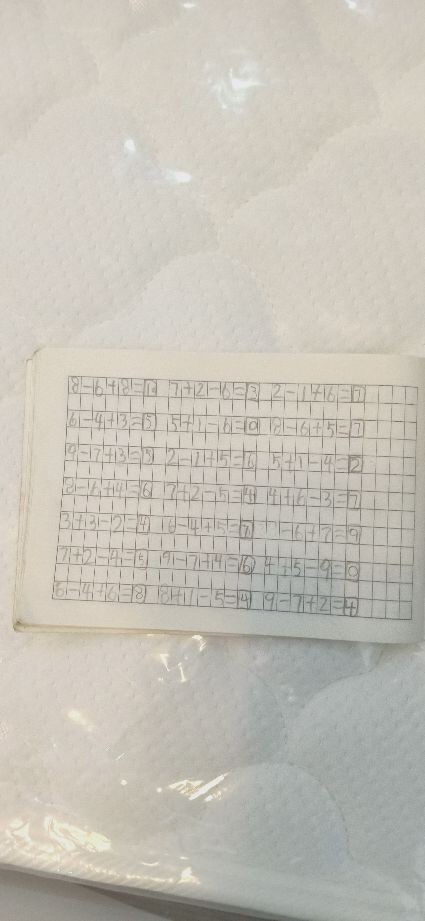 8-6+8=10 7+2-6=3 2-1+6=7
6-4+3=5 5+1-6=0 8-6+5=7
9-7+3=5 2-1+5=6 5+1-4=2
8-6+4=6 7+2-5=4 4+6-3=7
3+3-2=4 6-4+5=7 -6+7=9
7+2-4=5 9-7+4=6 4+5-9=0
6-4+6=8 8+1-5=4 9-7+2=4